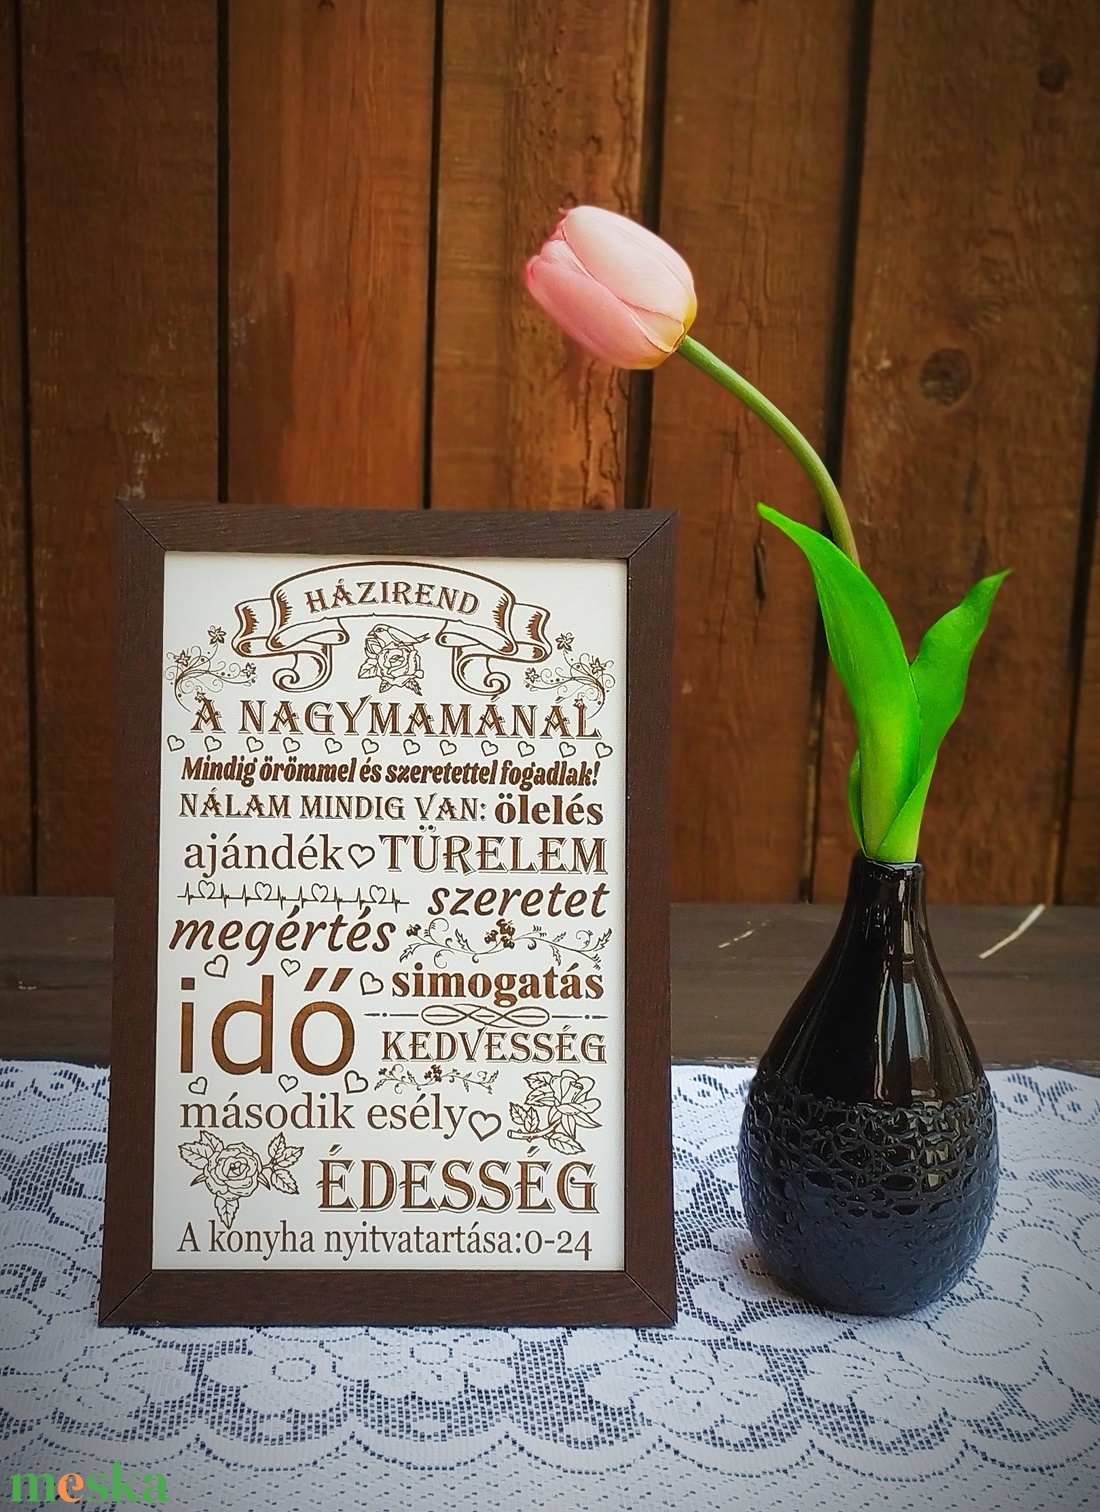 HÁZIREND
A NAGYMAMÁNÁL
Mindig örömmel és szeretettel fogadlak!
NÁLAM MINDIG VAN: ölelés
ajándék TÜRELEM
szeretet
megértés
simogatás
idő
KEDVESSÉG
második esély
ÉDESSÉG
A konyha nyitvatartása:0-24
meska